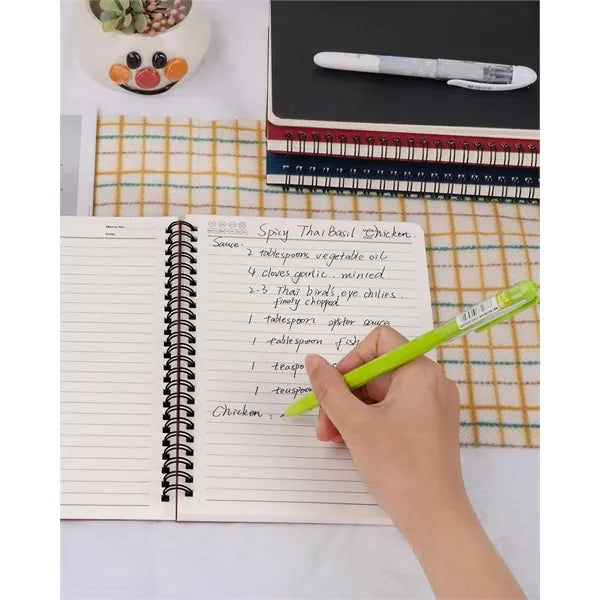 Spicy Thai Basil Chicken.
Sauce:
2 tablespoons vegetable oil
4 cloves garlic. minied
2-3 Thai bird's eye chilies.
finely chopped
1 tablespoon oyster sauce
1 tablespoon fish
1 teaspo
1 teaspoon
Chicken: